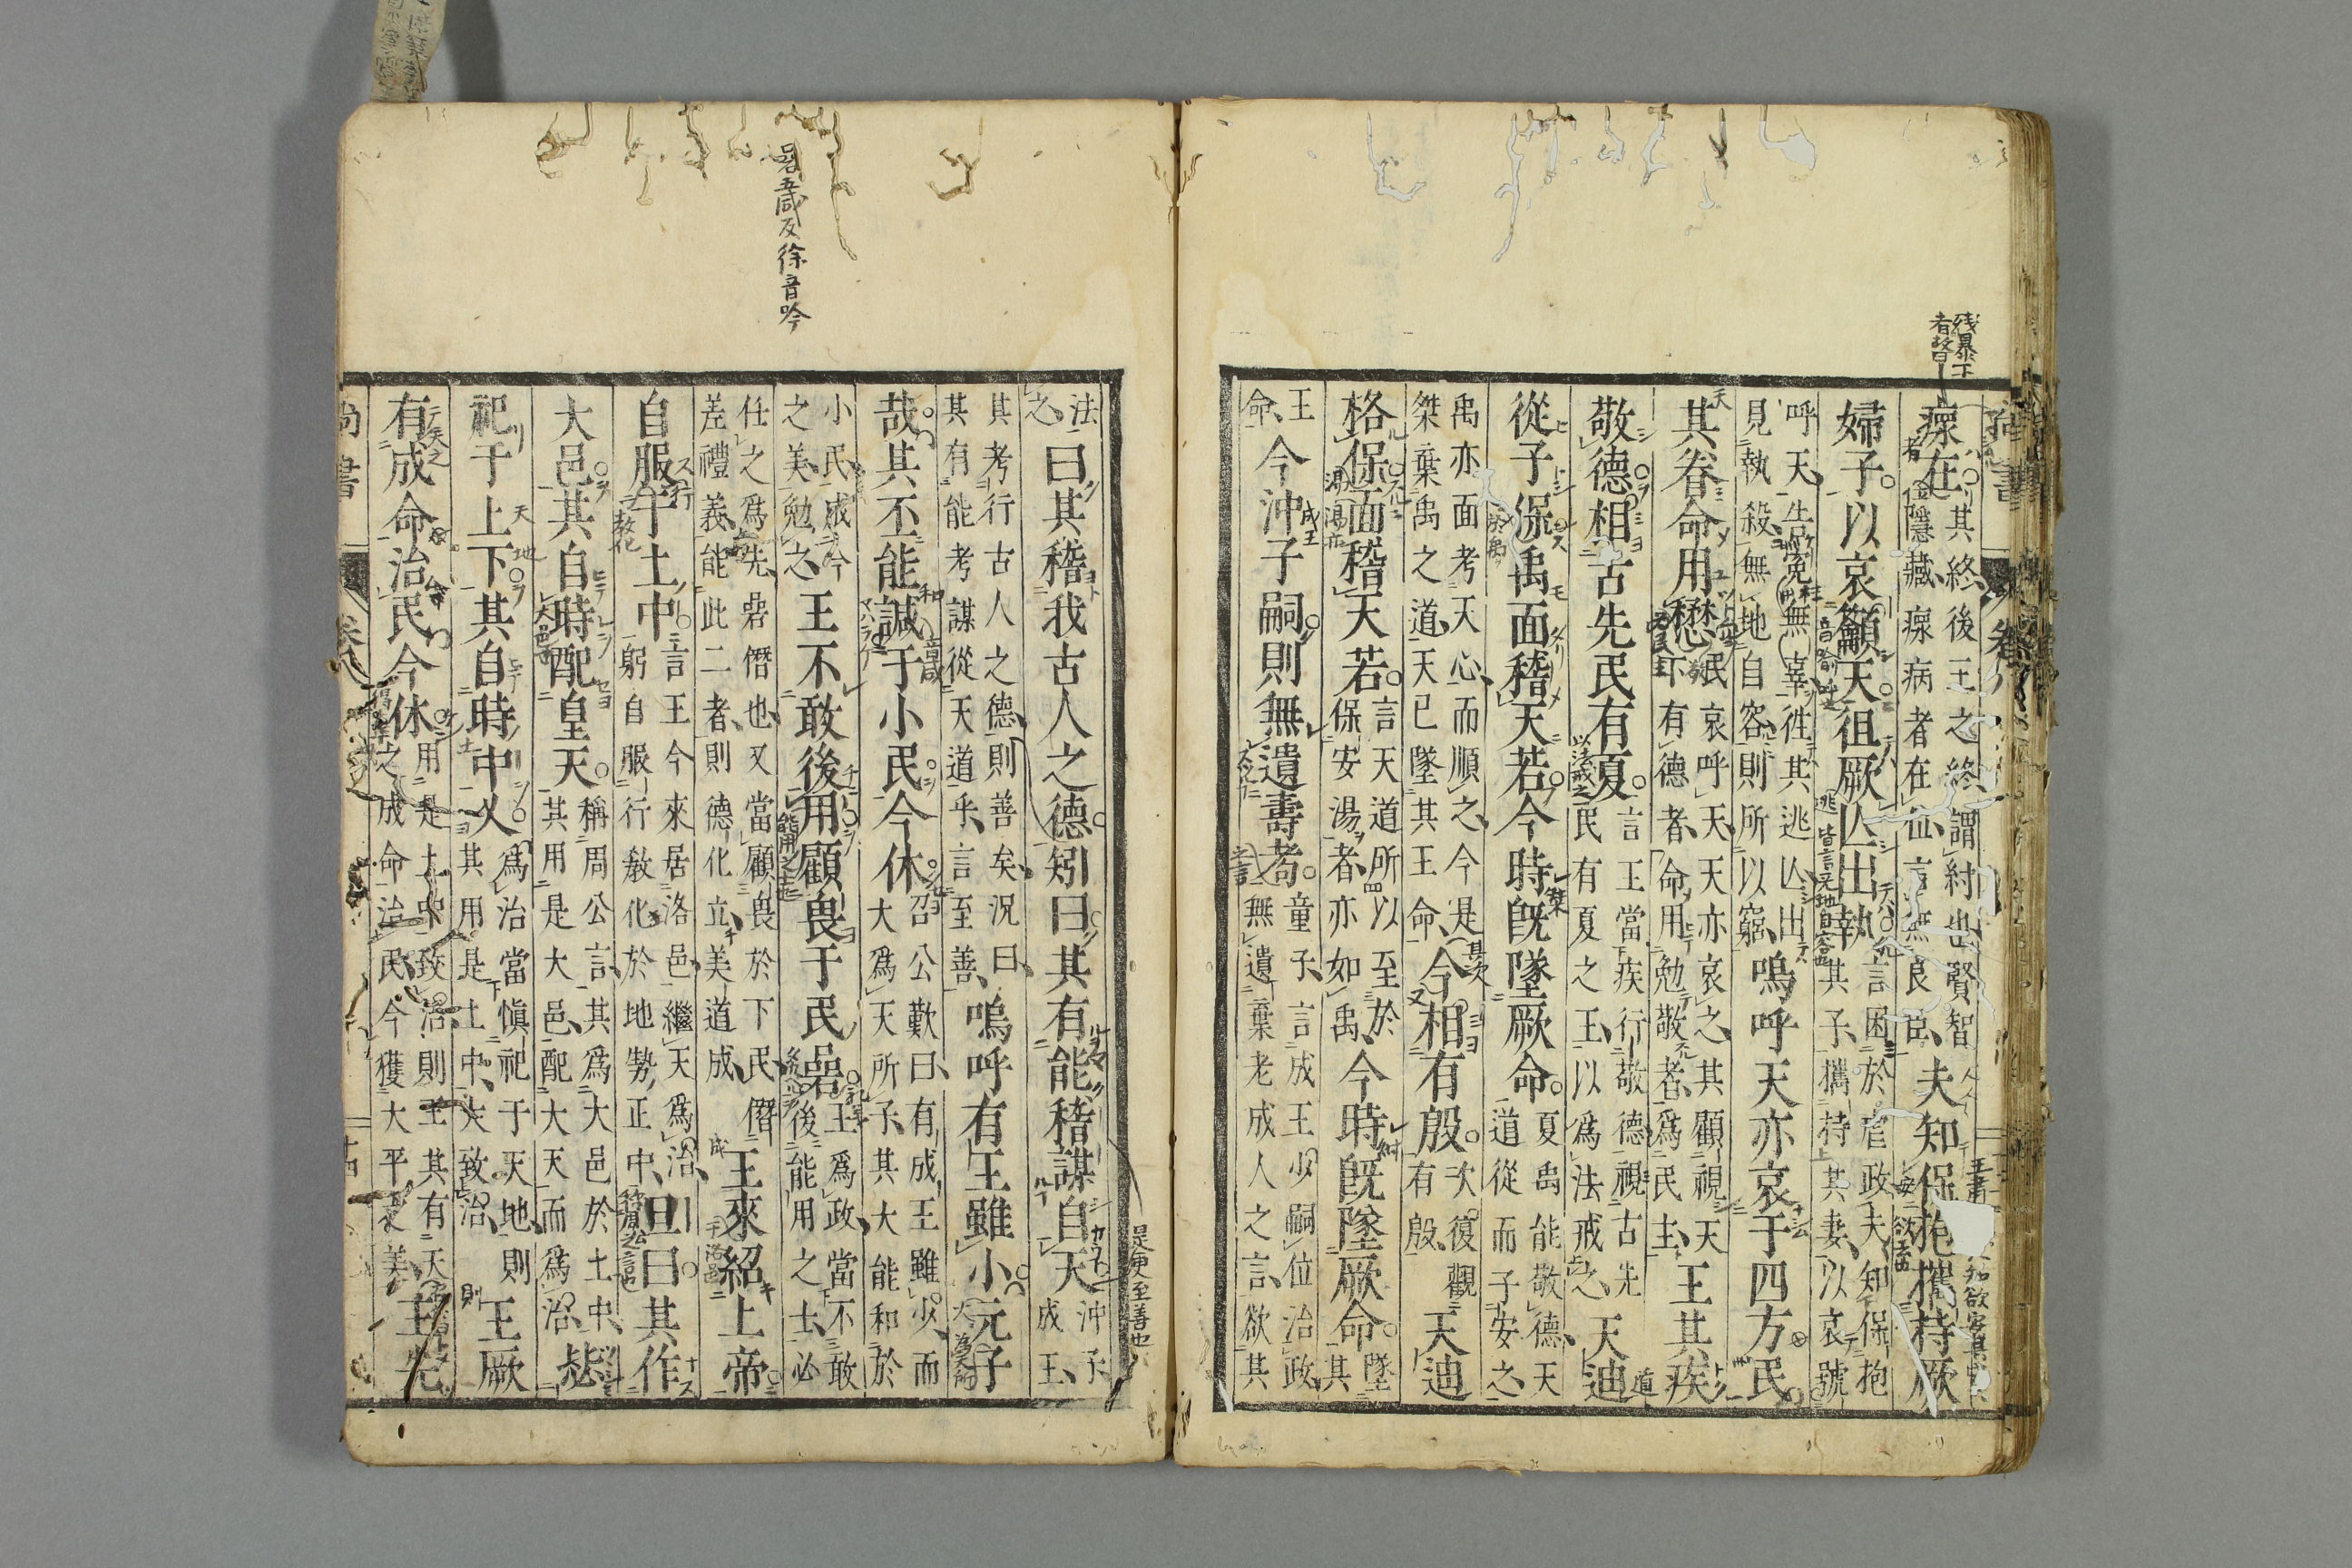 瘝在其終後王之終謂紂也賢智
者隱藏瘝病者在位言無良臣夫知保抱攜持厥
婦子以哀籲天徂厥亾出執言困於虐政夫知保抱
其子攜持其妻以哀號
呼天告冤無辜徃其逃亾出
見執殺無地自容則所以窮嗚呼天亦哀于四方民
其眷命用懋民哀呼天天亦哀之其顧視天
下有德者命用勉敬者爲民主王其疾
敬德相古先民有夏言王當疾行敬德視古先
民有夏之王以爲法戒之天迪
從子保禹面稽天若今時旣墜厥命夏禹能敬德天
道從而子安之
禹亦面考天心而順之今是
桀棄禹之道天已墜其王命今相有殷次復觀
有殷天迪
格保面稽天若言天道所以至於
保安湯者亦如禹今時旣墜厥命墜
其
王
命今沖子嗣則無遺壽耇童子言成王少嗣位治政
無遺棄老成人之言欲其
法
之曰其稽我古人之德矧曰其有能稽謀自天沖子
成王
其考行古人之德則善矣況曰
其有能考謀從天道乎言至善嗚呼有王雖小元子
哉其丕能諴于小民今休召公歎曰有成王雖少而
大爲天所子其大能和於
小民成今
之美勉之王不敢後用顧畏于民碞王爲政當不敢
後能用之士必
任之爲先碞僭也又當顧畏於下民僭
差禮義能此二者則德化立美道成王來紹上帝
自服于土中言王今來居洛邑繼天爲治
躬自服行敎化於地勢正中旦曰其作
大邑其自時配皇天稱周公言其爲大邑於土中
其用是大邑配大天而爲治毖
祀于上下其自時中乂爲治當愼祀于天地則
其用是土中大致治王厥
有成命治民今休用是土中致治則王其有天
之成命治民今獲大平之美王先
尚書
卷八
十四
碞五咸反徐音吟
残暴下
者瞽